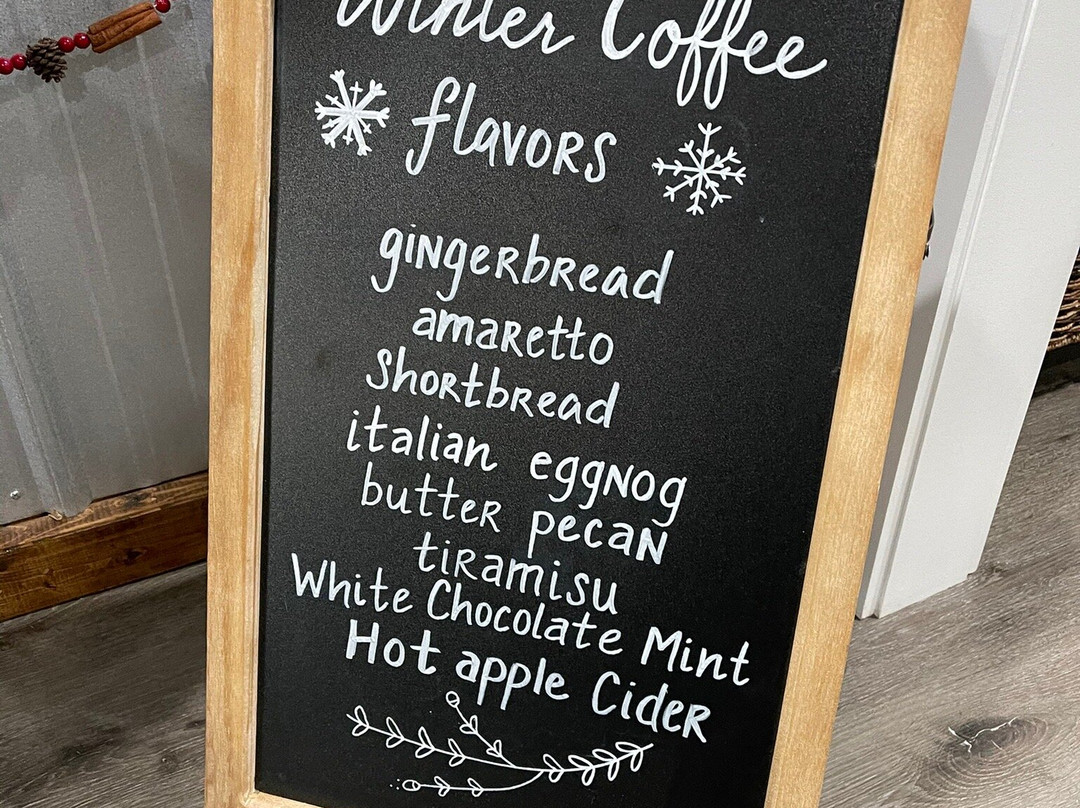 Winter Coffee
flavors
gingerbread
amaretto
Shortbread
italian eggnog
butter pecan
tiramisu
White Chocolate Mint
Hot apple Cider